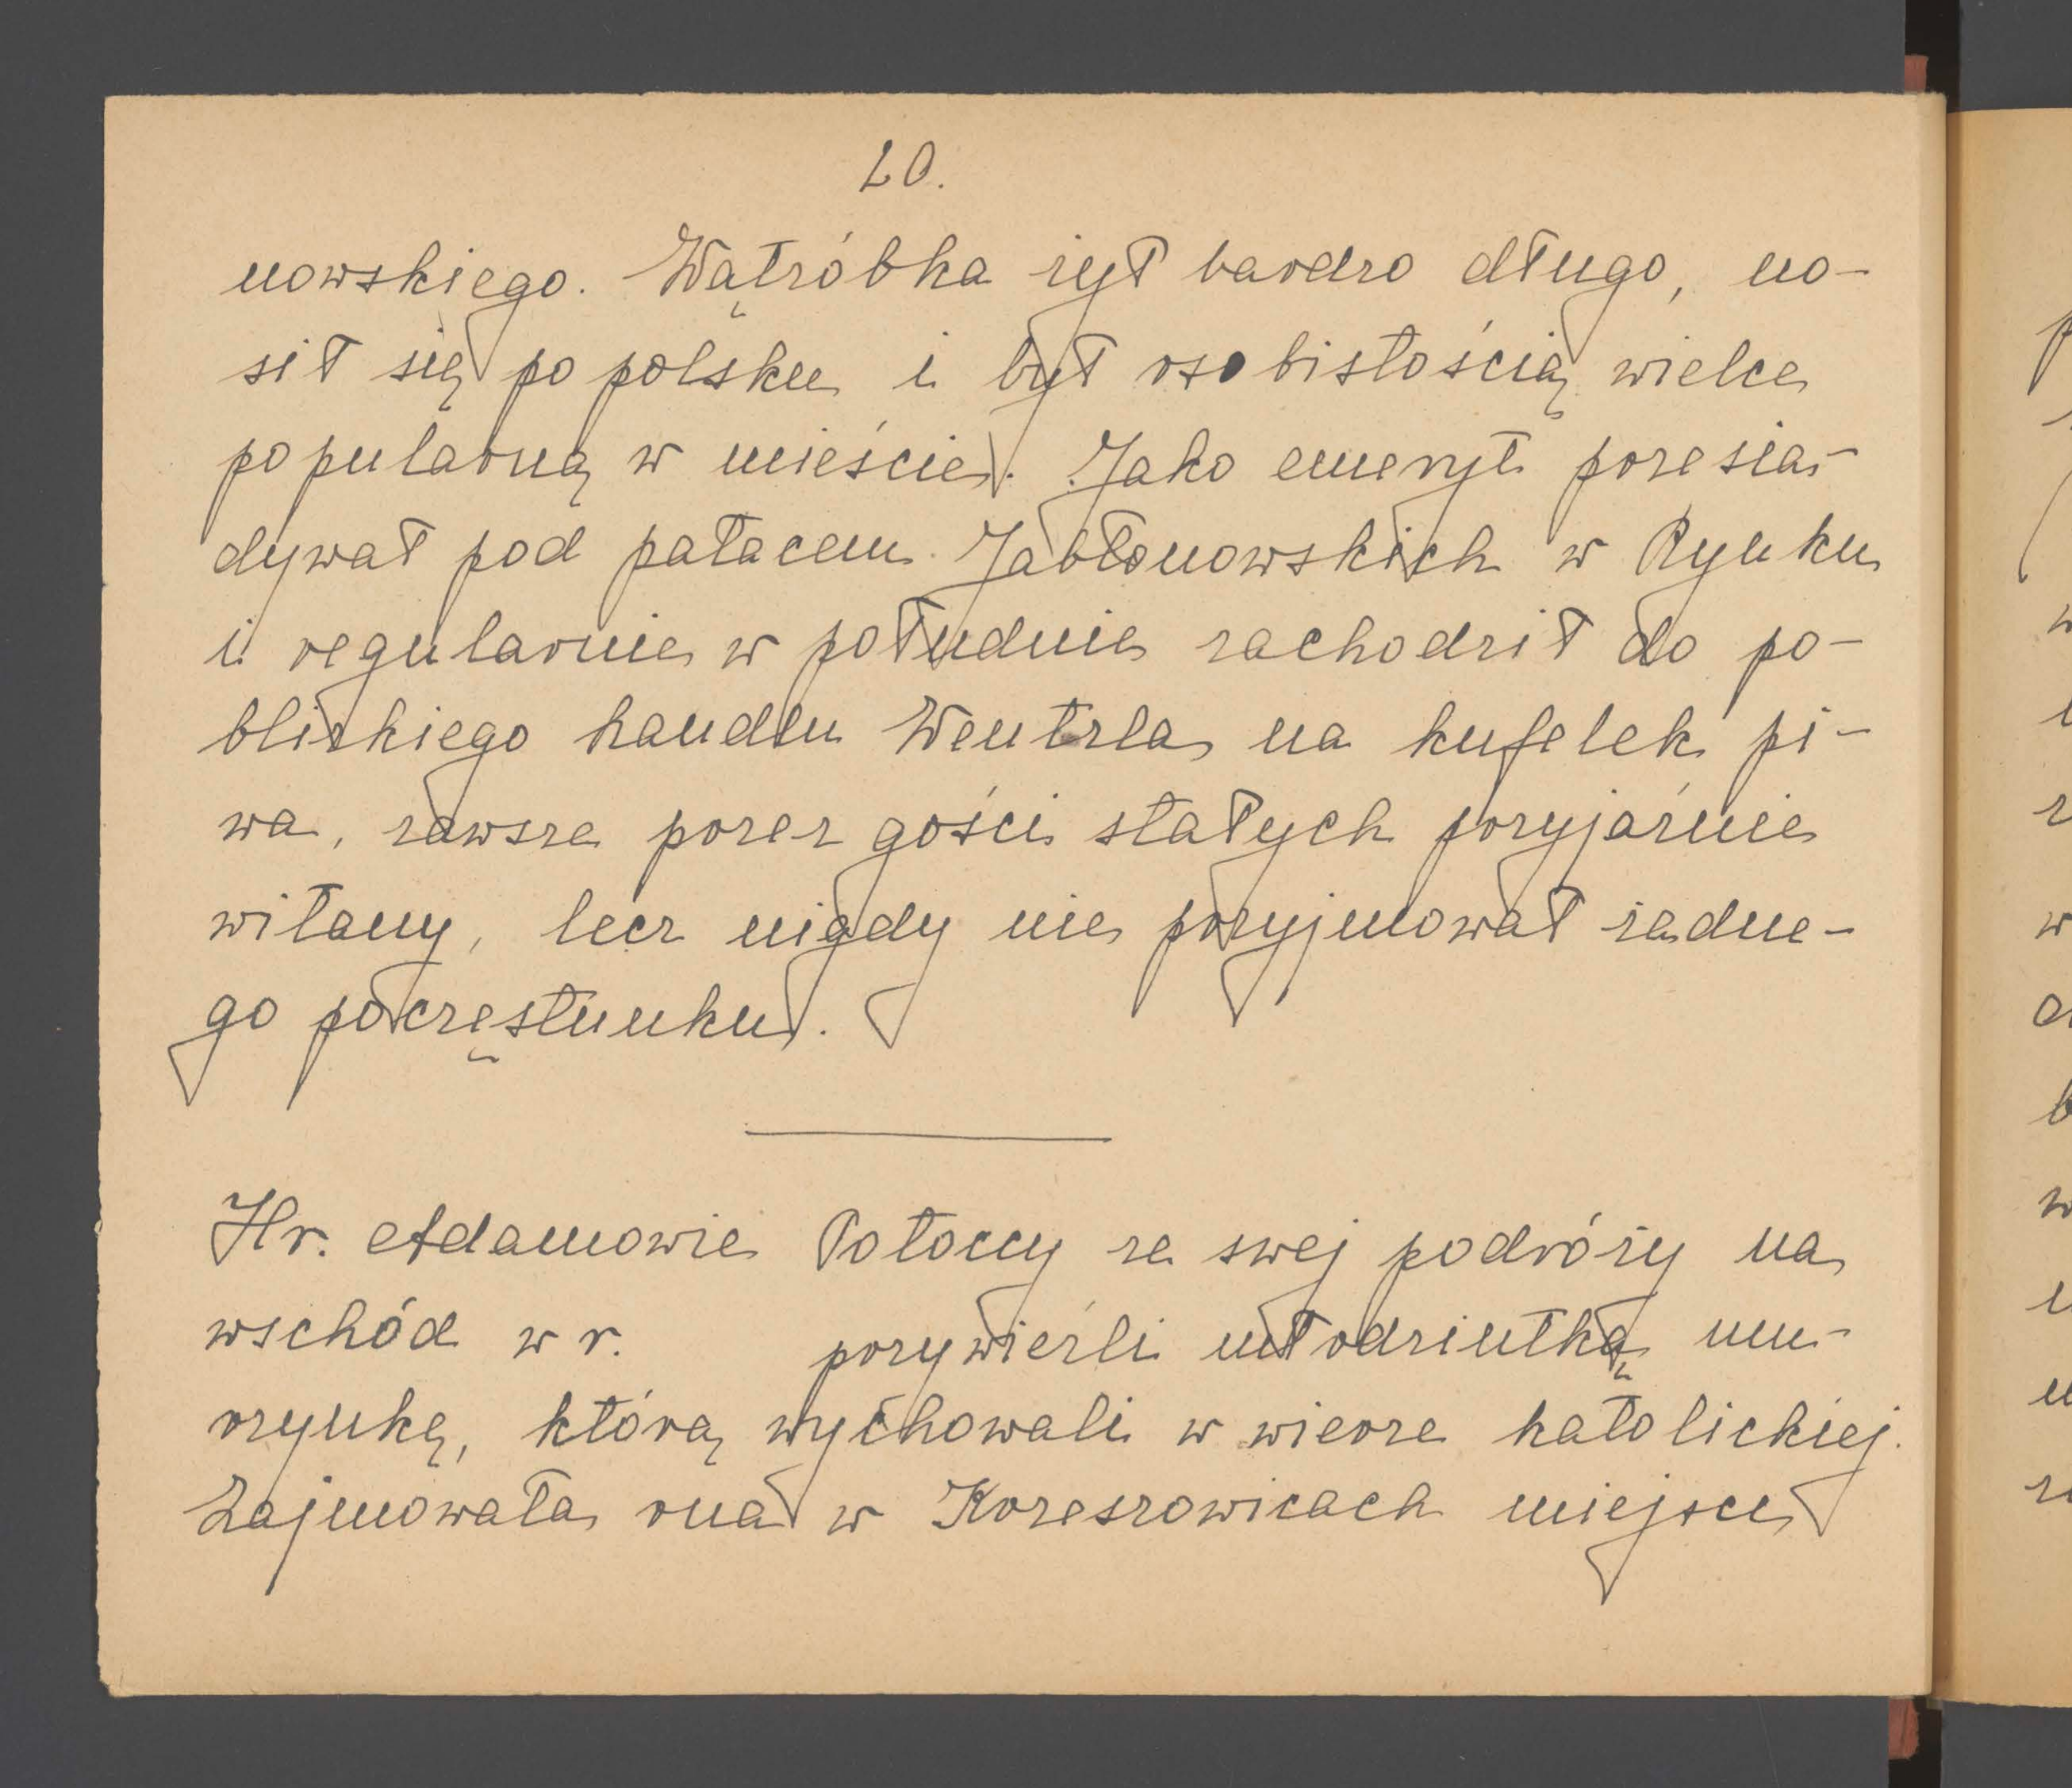 20.
nowskiego. Wątróbka żył bardzo długo, no-
sił się po polsku i był osobistością wielce
popularną w mieście. Jako emeryt przesia-
dywał pod pałacem Jabłonowskich w Rynku
i regularnie w południe zachodził do po-
bliskiego handlu Wentzla na kufelek pi-
wa, zawsze przez gości stałych przyjaźnie
witany, lecz nigdy nie przyjmował żadne-
go poczęstunku.
Hr. Adamowie Potoccy ze swej podróży na
wschód w r. przywieźli młodziutką mu-
rzynkę, którą wychowali w wierze katolickiej.
Zajmowała ona w Krzeszowicach miejsce